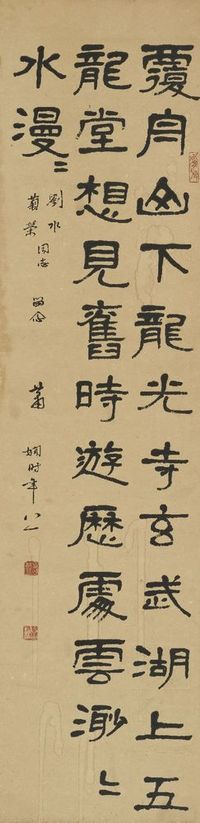 覆舟山下龍光寺玄武湖上五
龍堂想見舊時遊歷處雲渺〻
水漫〻
劉水
菊榮
同志
留念
蕭嫻时年八一